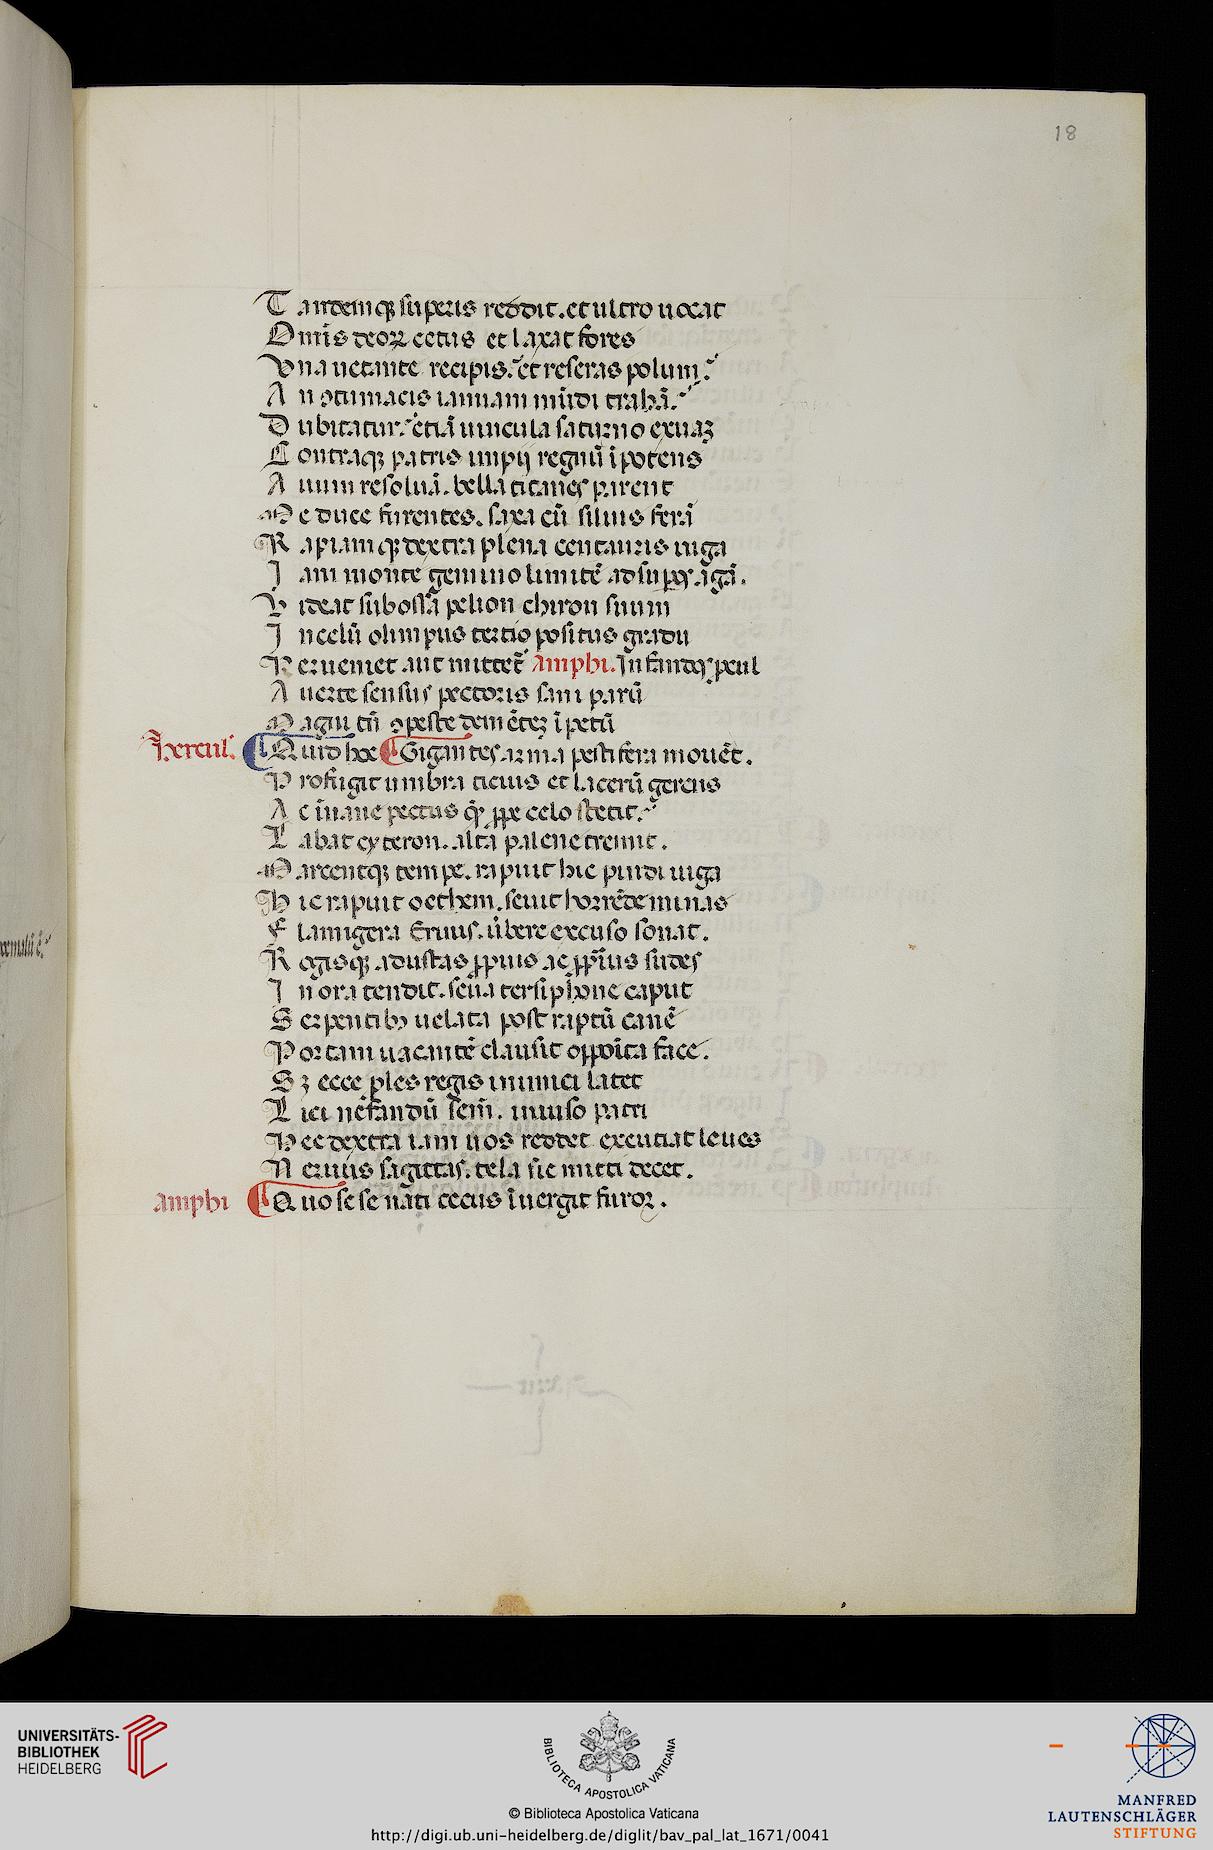 18
T amdemq; superis reddit. et ultro uocat
O mīs deoꝝ cetus et laxat fores
V na uetante recipis. et reseras polum.
A n ꝯtumacis ianuam mūdi trahā.
D ubitatur. etiā uincula saturno exuaꝫ
C ontraqꝫ patris impij regnū īpotens
A uum resoluā. bella titanes parent
M e duce furentes. saxa cū siluis ferā
R apiamqꝫ dextra plena centauris iuga
I am monte gemino limitē ad supos agā.
V ideat sub ossa pelion chiron suum
I n celū olimpus tertio positus gradu
P erueniet aut mittet̄ Amphi. Infandos pcul
A uerte sensus pectoris sani parū
M agni tn̄ ꝯpesce dementeꝫ īpetū
Hercul. Quid hoc Gigantes arma pestifera mouēt.
P rofugit umbra ticius et lacerū gerens
A c īnane pectus q̄ꝫ ꝓpe celo stetit.
L abat cyteron. alta palene tremit.
M arcentqꝫ tempe. rapuit hic pindi iuga
H ic rapuit oethem. seuit horrēde minas
F lamigera Erinis. ūbere excuso sonat.
R ogisqꝫ adustas ꝓpius ac ꝓpius sudes
I n ora tendit. seua tersiphone caput
S erpentibꝫ uelata post raptū canē
P ortam uacantē clausit oppoita face.
Sꝫ ecce ꝓles regis inimici latet
L ici nefandū sem̄. inuiso patri
H ec dextra iam uos reddet excutiat leues
N eruus sagittas. tela sic mitti decet.
Amphi Quo sese nati cecus īuergit furor.
UNIVERSITÄTS-
BIBLIOTHEK
HEIDELBERG
BIBLIOTECA APOSTOLICA VATICANA
© Biblioteca Apostolica Vaticana
http://digi.ub.uni-heidelberg.de/diglit/bav_pal_lat_1671/0041
MANFRED
LAUTENSCHLÄGER
STIFTUNG